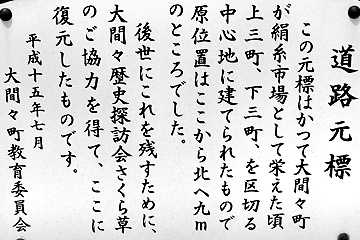 道路元標
この元標はかつて大間々町
が絹糸市場として栄えた頃
上三町、下三町、を区切る
中心地に建てられたもので
原位置はここから北へ九m
のところでした。
後世にこれを残すために、
大間々歴史探訪会さくら草
のご協力を得て、ここに
復元したものです。
平成十五年七月
大間々町教育委員会